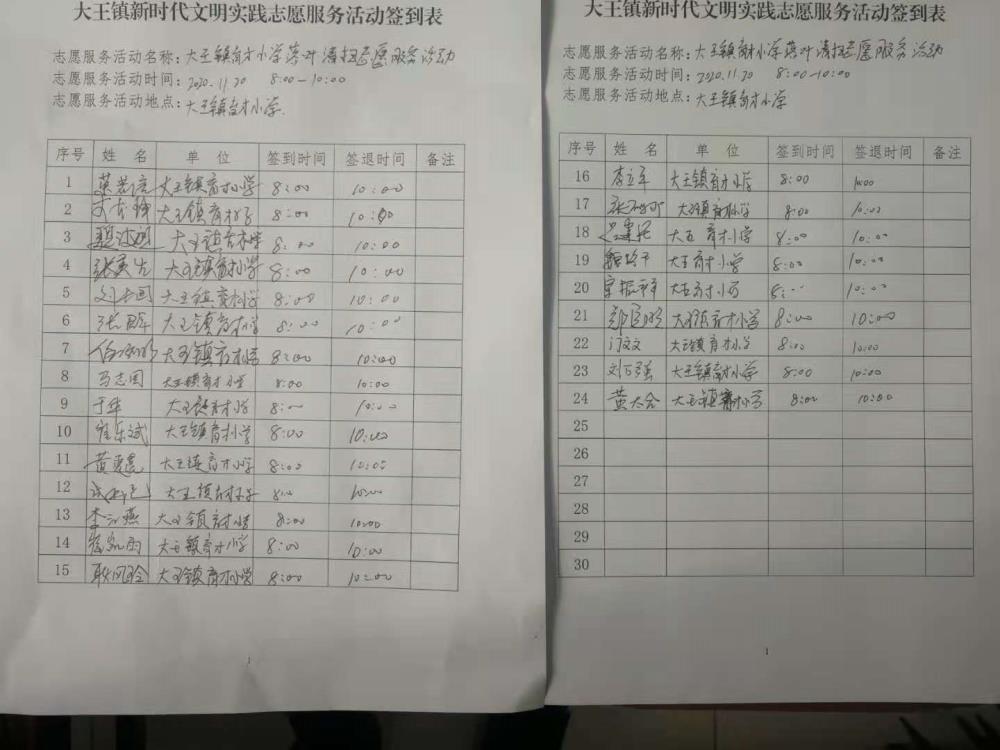 大王镇新时代文明实践志愿服务活动签到表
志愿服务活动名称：大王镇育才小学落叶清扫志愿服务活动
志愿服务活动时间：2020.11.20 8:00-10:00
志愿服务活动地点：大王镇育才小学.
序号 姓 名 单 位 签到时间 签退时间 备注
1 大王镇育才小学 8:00 10:00
2 大王镇育才小学 8:00 10:00
3 大王镇育才小学 8:00 10:00
4 张 大王镇育才小学 8:00 10:00
5 刘 大王镇育才小学 8:00 10:00
6 张 大王镇育才小学 8:00 10:00
7 大王镇育才小学 8:00 10:00
8 马志国 大王镇育才小学 8:00 10:00
9 于华 大王镇育才小学 8:00 10:00
10 崔乐斌 大王镇育才小学 8:00 10:00
11 黄 大王镇育才小学 8:00 10:00
12 大王镇育才小学 8:00 10:00
13 李 燕 大王镇育才小学 8:00 10:00
14 大王镇育才小学 8:00 10:00
15 耿风玲 大王镇育才小学 8:00 10:00
1
大王镇新时代文明实践志愿服务活动签到表
志愿服务活动名称：大王镇育才小学落叶清扫志愿服务活动
志愿服务活动时间：2020.11.20 8:00-10:00
志愿服务活动地点：大王镇育才小学
序号 姓 名 单 位 签到时间 签退时间 备注
16 李立军 大王镇育才小学 8:00 10:00
17 张 大王镇育才小学 8:00 10:00
18 大王育才小学 8:00 10:00
19 大王育才小学 8:00 10:00
20 大王育才小学 8:00 10:00
21 大王镇育才小学 8:00 10:00
22 门文文 大王镇育才小学 8:00 10:00
23 刘万强 大王镇育才小学 8:00 10:00
24 黄大会 大王镇育才小学 8:00 10:00
25
26
27
28
29
30
1